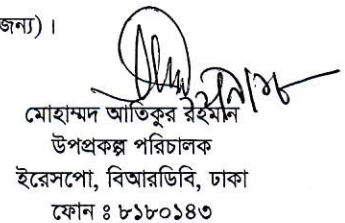 জন্য)।
মোহাম্মদ আতিকুর রহমান
উপপ্রকল্প পরিচালক
ইরেসপো, বিআরডিবি, ঢাকা
ফোন ঃ ৮১৮০১৪৩